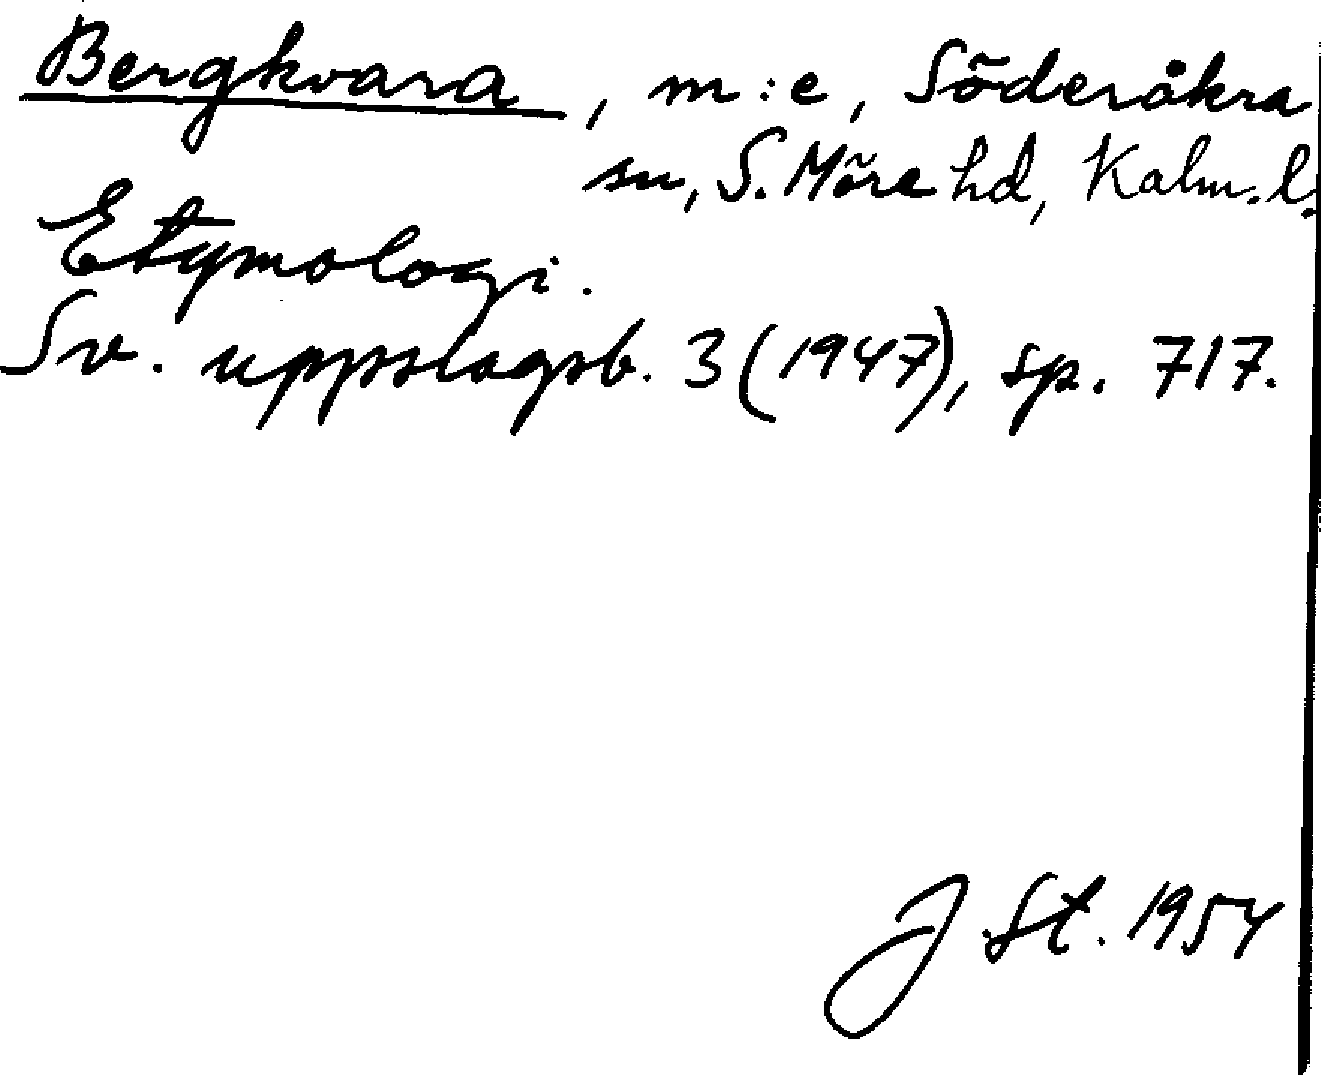 Bergkvara, m:e, Söderåkra
sn, S. Möre hd, Kalm. l.
Etymologi.
Sv. uppslagsb. 3 (1947), sp. 717.
J St. 1954